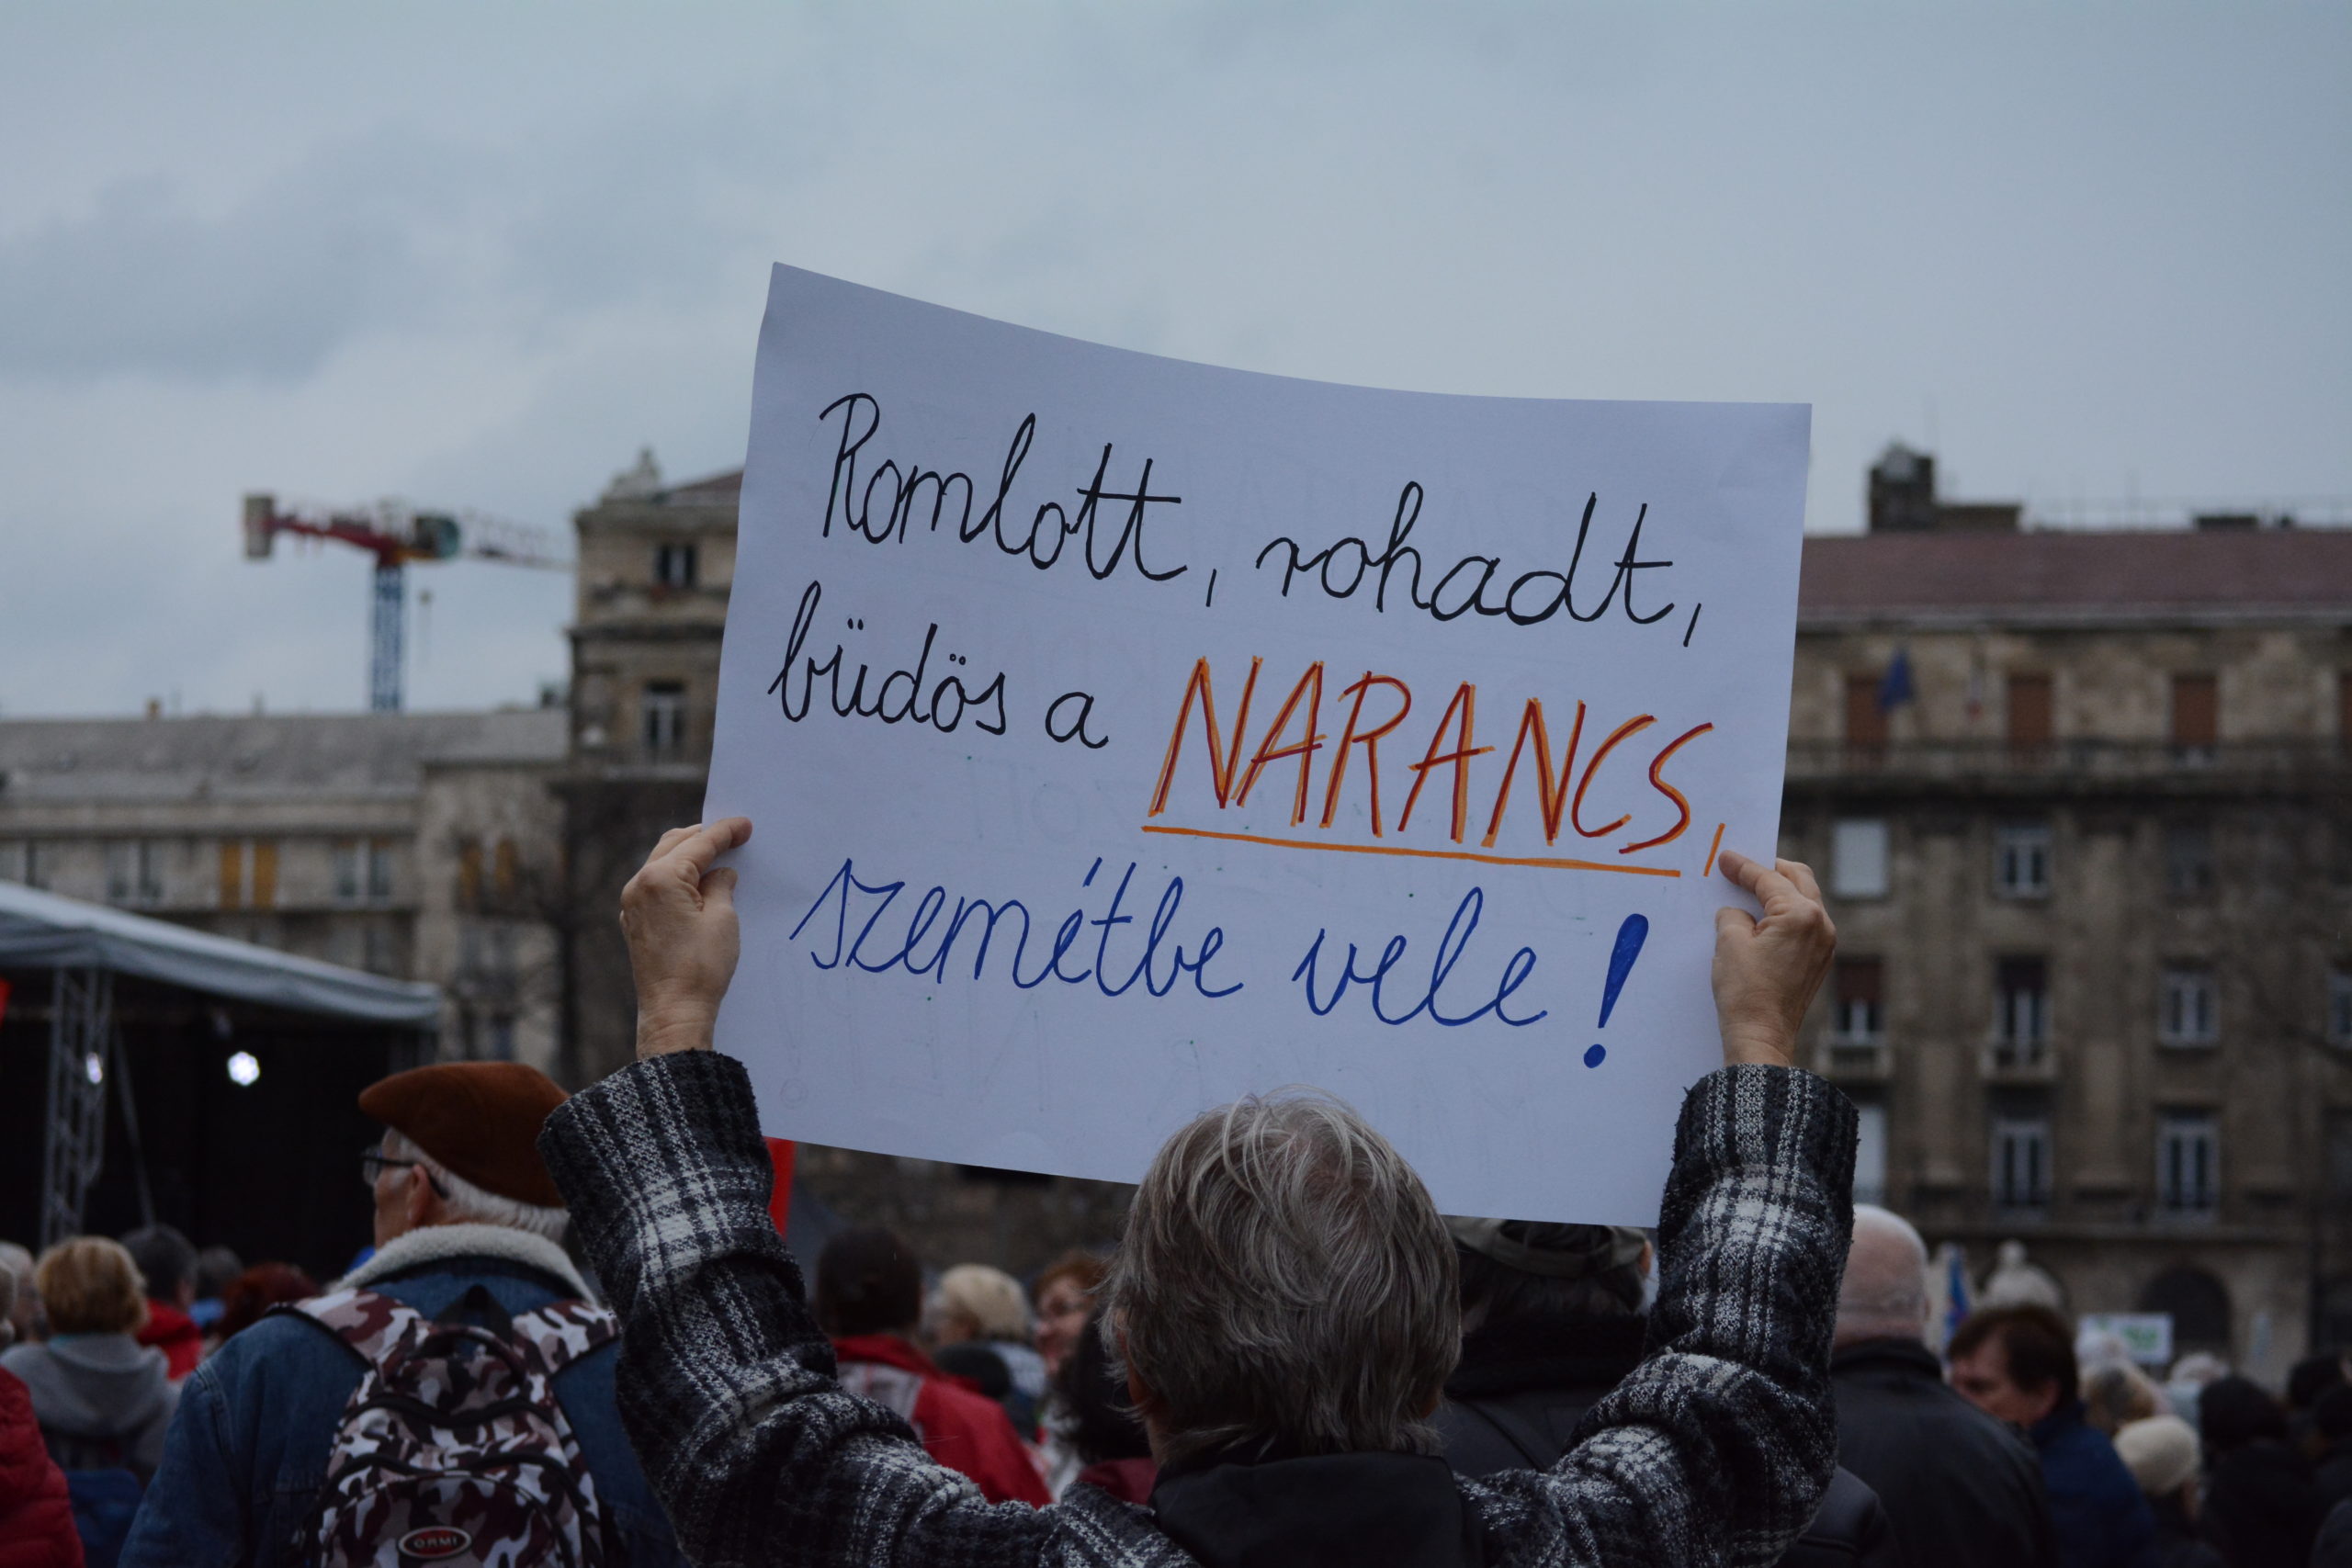 Romlott, rohadt,
büdös a NARANCS,
szemétbe vele!
ORMI